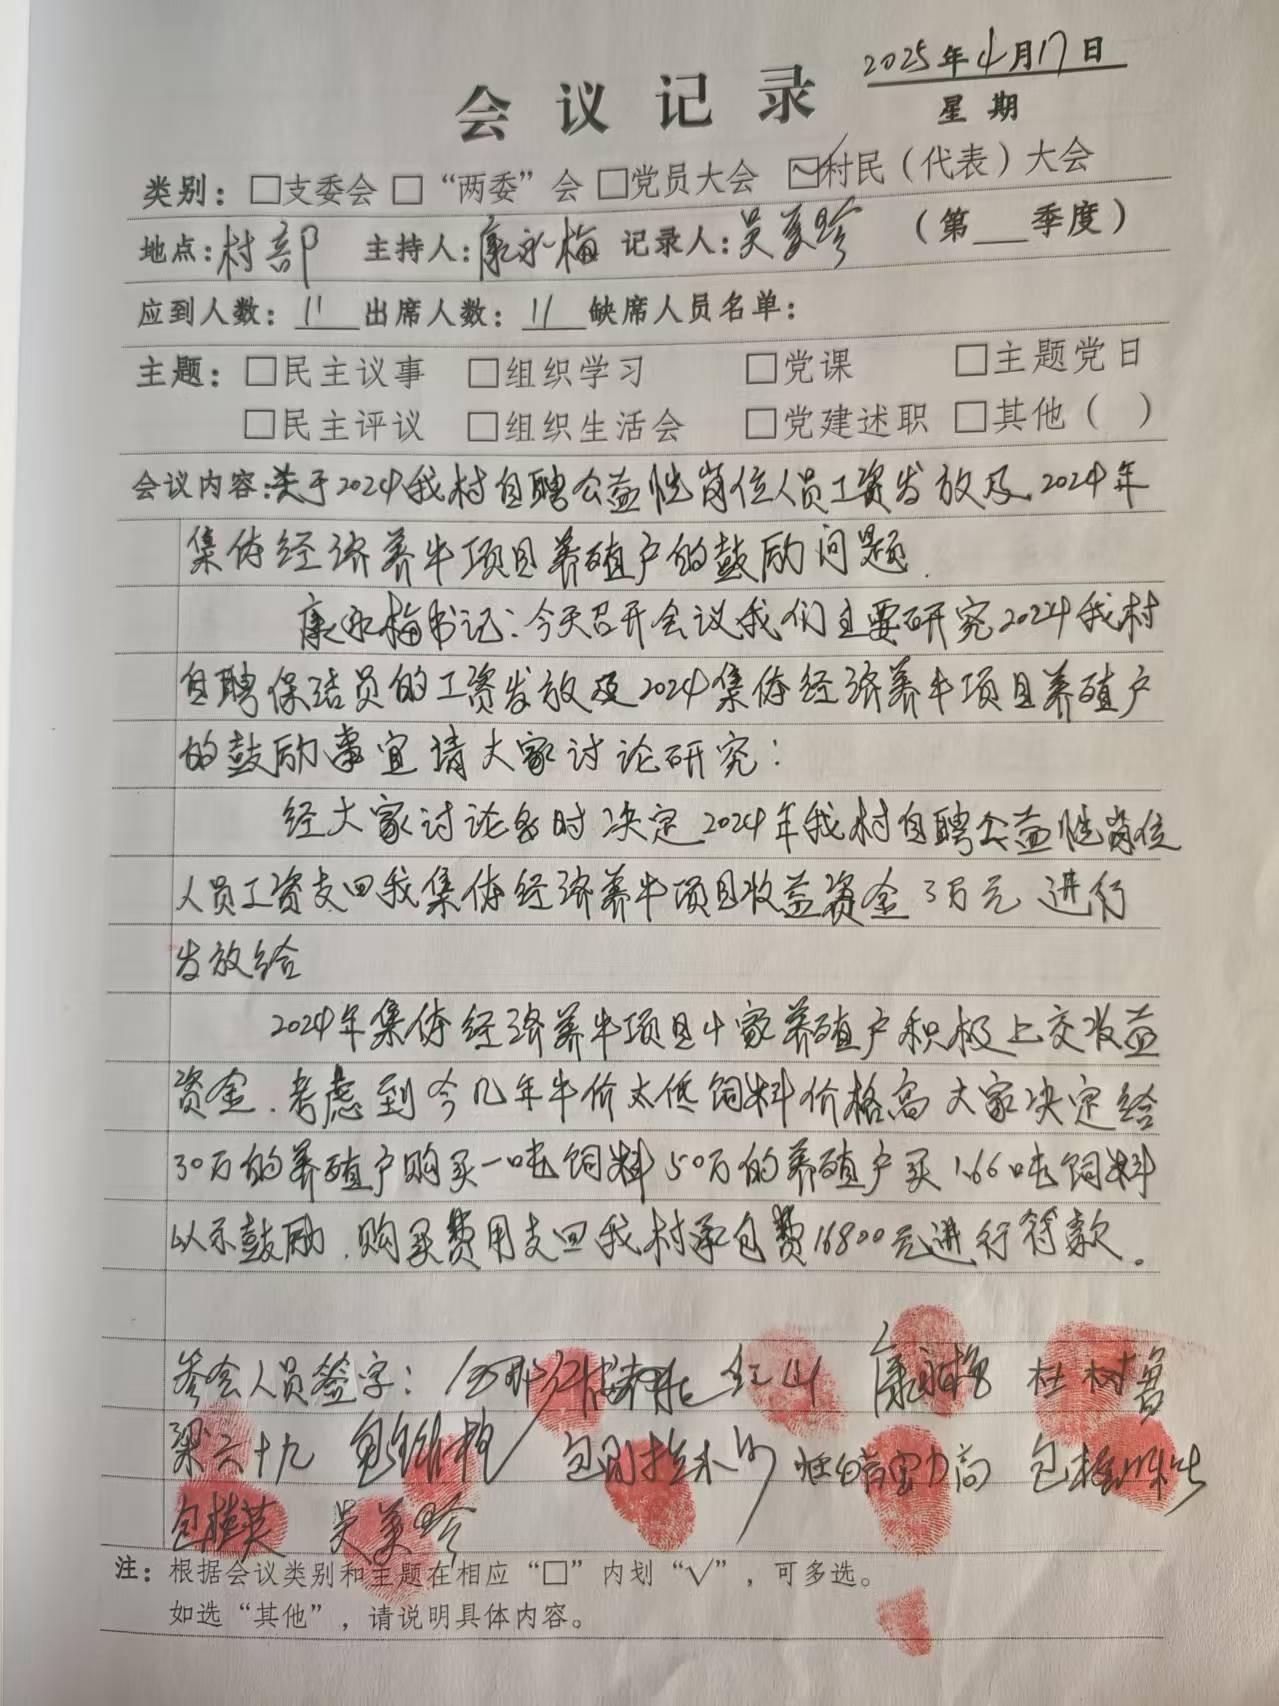 2025年4月17日
会议记录
星期
类别：□支委会 □“两委”会 □党员大会 ☑村民（代表）大会
地点：村部 主持人：康永梅 记录人：吴美玲 （第___季度）
应到人数：11 出席人数：11 缺席人员名单：
主题：□民主议事 □组织学习 □党课 □主题党日
□民主评议 □组织生活会 □党建述职 □其他（ ）
会议内容：关于2024我村自聘公益性岗位人员工资发放及2024年
集体经济养牛项目养殖户的鼓励问题.
康永梅书记：今天召开会议我们主要研究2024我村
自聘保洁员的工资发放及2024集体经济养牛项目养殖户
的鼓励事宜请大家讨论研究：
经大家讨论 决定2024年我村自聘公益性岗位
人员工资支回我集体经济养牛项目收益资金3万元进行
发放给
2024年集体经济养牛项目4家养殖户积极上交收益
资金.考虑到今几年牛价太低饲料价格高大家决定给
30万的养殖户购买一吨饲料50万的养殖户买1.66吨饲料
以示鼓励.购买费用支回我村承包费16800元进行付款.
参会人员签字： 红山 康永梅 杜树鲁
梁六十九
包桂英 吴美玲
注：根据会议类别和主题在相应“□”内划“√”，可多选。
如选“其他”，请说明具体内容。